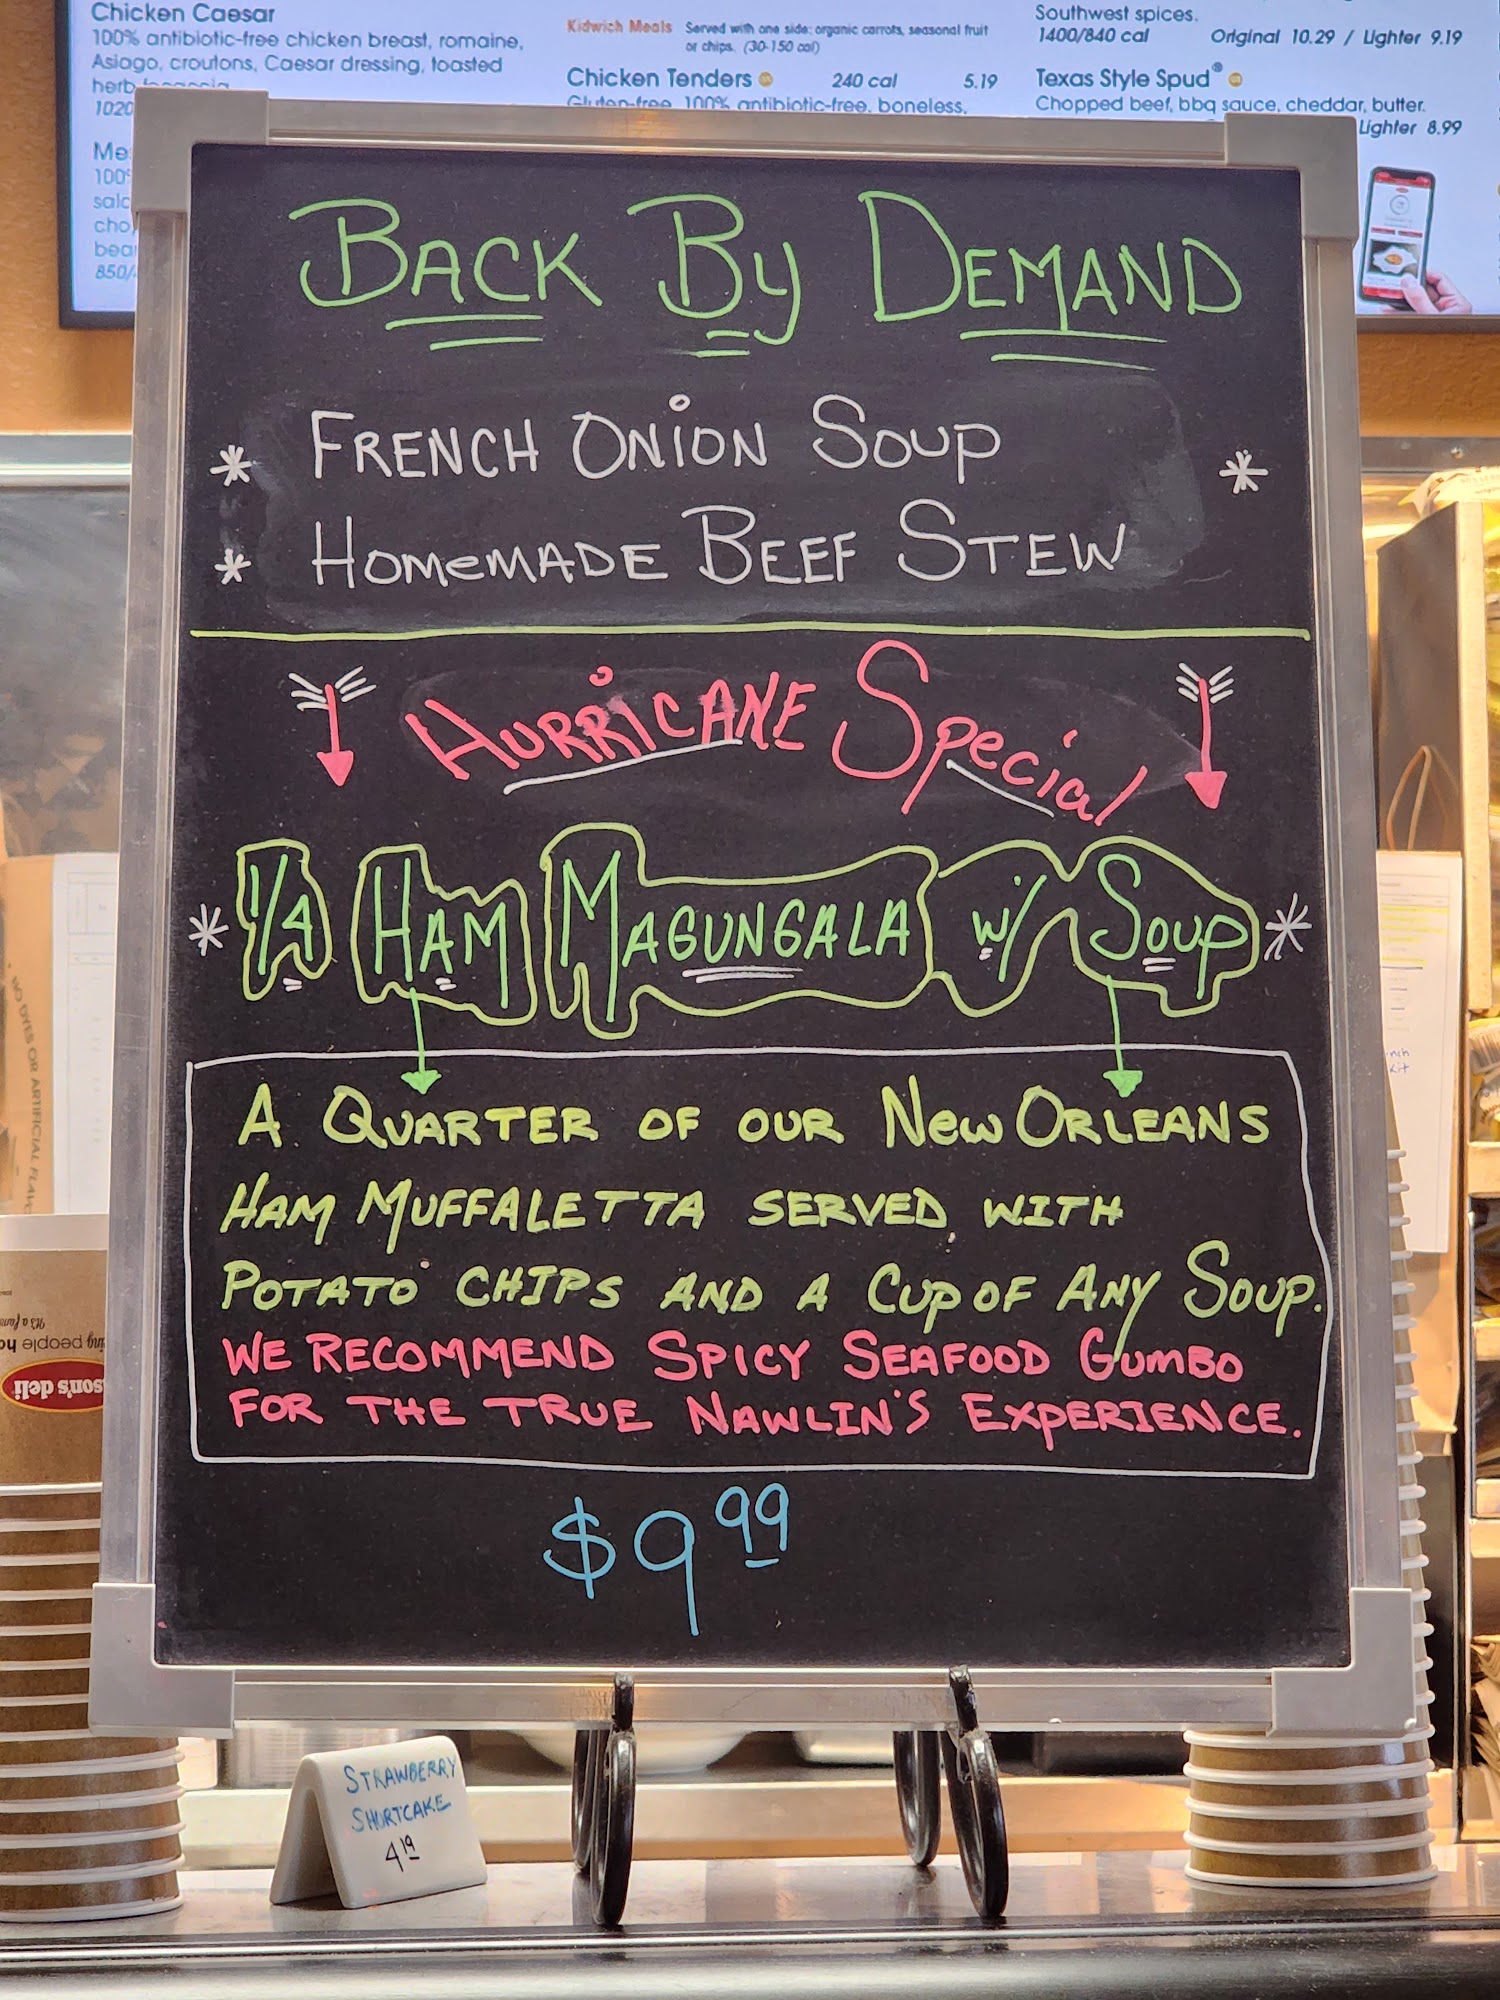 Chicken Caesar
100% antibiotic-free chicken breast, romaine,
Asiago, croutons, Caesar dressing, toasted
herb focaccia
1020
Me
100%
salc
cho
bea
850/
Kidwich Meals Served with one side: organic carrots, seasonal fruit
or chips. (30-150 cal)
Chicken Tenders 240 cal 5.19
Gluten-free, 100% antibiotic-free, boneless,
Southwest spices.
1400/840 cal Original 10.29 / Lighter 9.19
Texas Style Spud®
Chopped beef, bbq sauce, cheddar, butter.
Lighter 8.99
BACK BY DEMAND
* FRENCH ONiON SOUP *
* HOMeMADE BEEF STEW
HURRiCANE Special
* 1/4 HAM MAGUNGALA w/ SOUP *
A QUARTER OF OUR NEW ORLEANS
HAM MUFFALETTA SERVED WITH
POTATO CHIPS AND A CUP OF ANY SOUP.
WE RECOMMEND SPICY SEAFOOD GUMBO
FOR THE TRUE NAWLIN'S EXPERIENCE.
$9 99
STRAWBERRY
SHORTCAKE
4 19
NO DYES OR ARTIFICIAL FLAV
It's a fam
ing people ha
son's deli